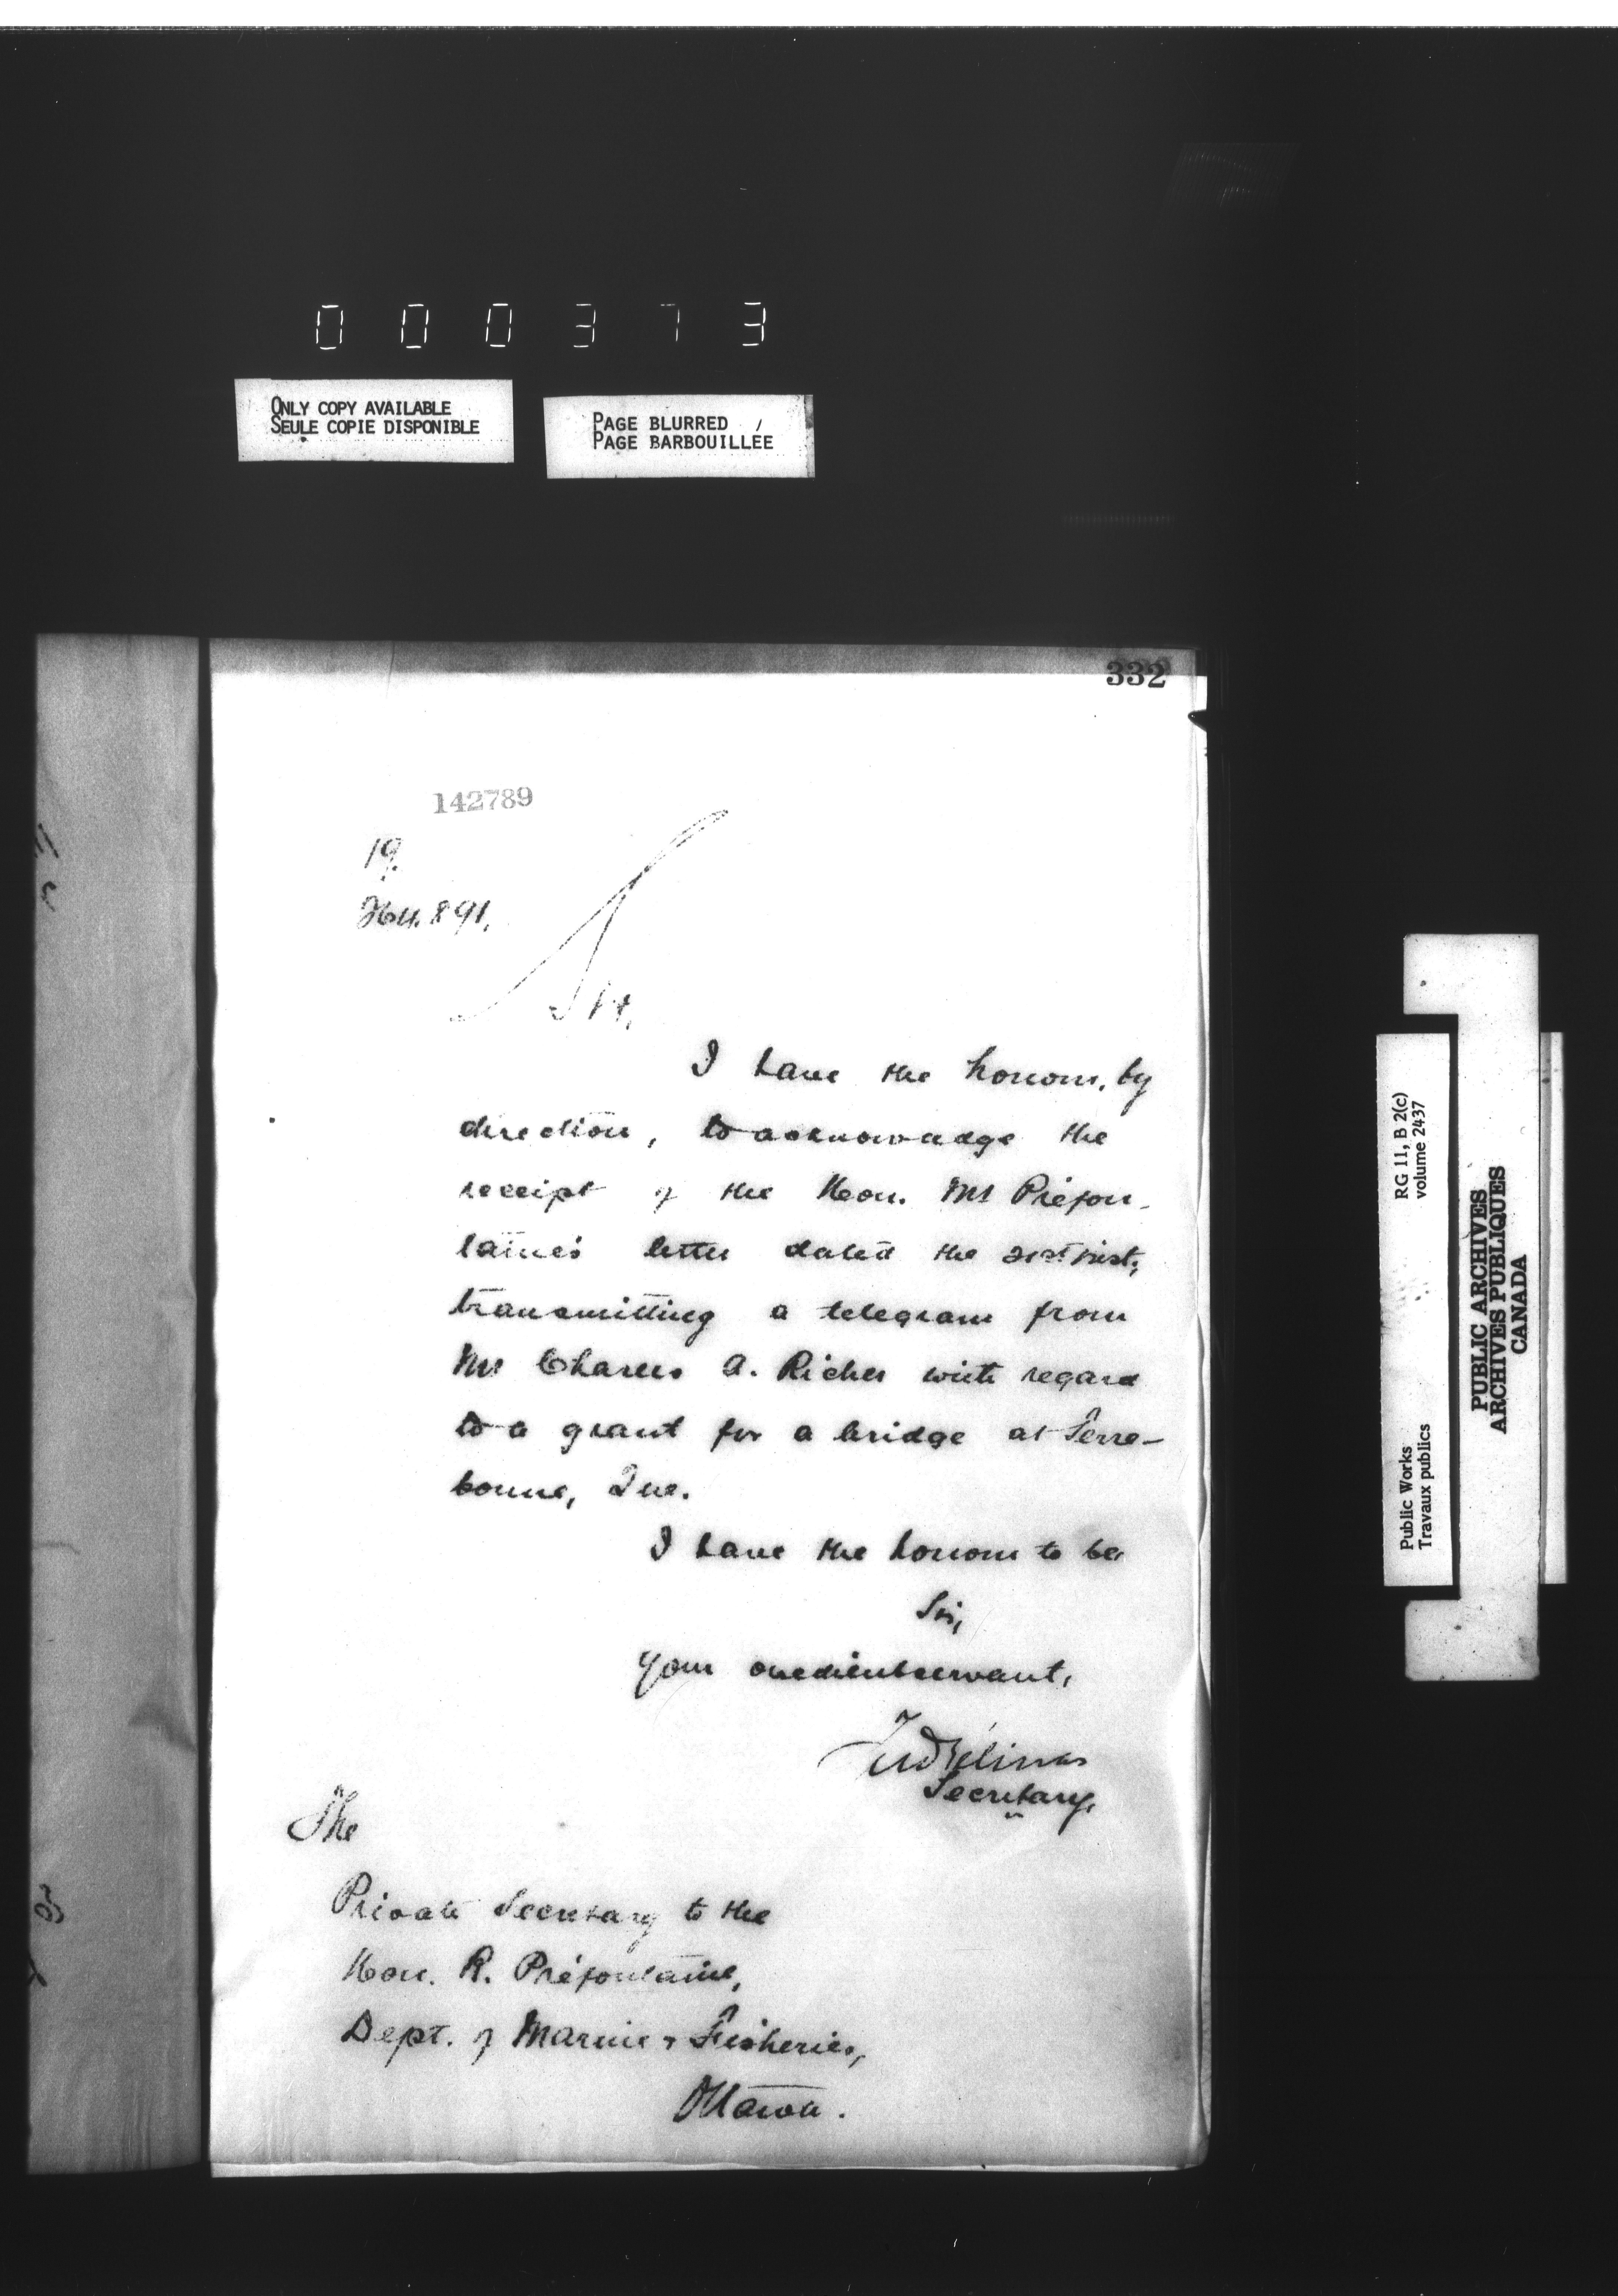 000373
ONLY COPY AVAILABLE
SEULE COPIE DISPONIBLE
PAGE BLURRED
PAGE BARBOUILLÉE
332
142789
19.
264.891.
Sir,
I have the honour, by
direction, to acknowledge the
receipt of the Hon. Mr Préfon-
taine's letter dated the inst.,
transmitting a telegram from
Mr Charles A. Richer with regard
to a grant for a bridge at Terre-
bonne, Que.
I have the honour to be,
Sir,
Your obedient servant,
Fred Gélinas
Secretary.
The
Private Secretary to the
Hon. R. Préfontaine,
Dept. of Marine & Fisheries,
Ottawa.
RG 11, B 2(c)
volume 2437
Public Works
Travaux publics
PUBLIC ARCHIVES
ARCHIVES PUBLIQUES
CANADA